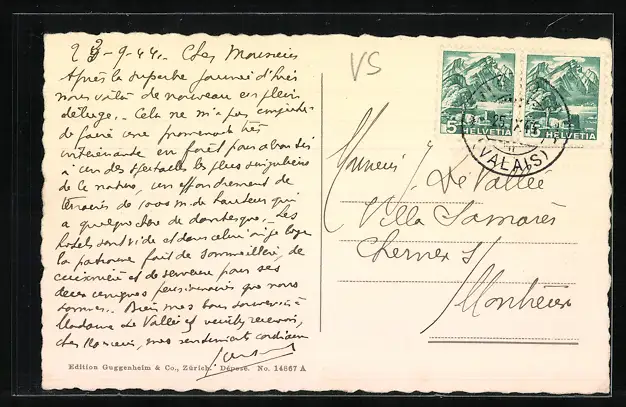 23-9-44. Cher Monsieur
Après la superbe journée d'hier
nous voilà de nouveau en plein
déluge. Cela ne m'a pas empêché
de faire une promenade très
intéressante en forêt pour aboutir
à un des spectacles les plus singuliers
de la nature, un effondrement de
terrains de 1000 m de hauteur qui
a quelque chose de dantesque. Les
hotels sont vide et dans celui où je loge
la patronne fait de sommelière, de
cuisinière et de serveuse pour ses
deux uniques pensionnaires que nous
sommes. Bien mes bons souvenirs à
Madame de Vallée et veuillez recevoir,
cher Monsieur, mes sentiments cordiaux
Edition Guggenheim & Co., Zürich. Déposé. No. 14867 A
VS
Monsieur
De Vallée
Villa Samarès
Chernex s/
Montreux
5 HELVETIA
5 HELVETIA
(VALAIS)